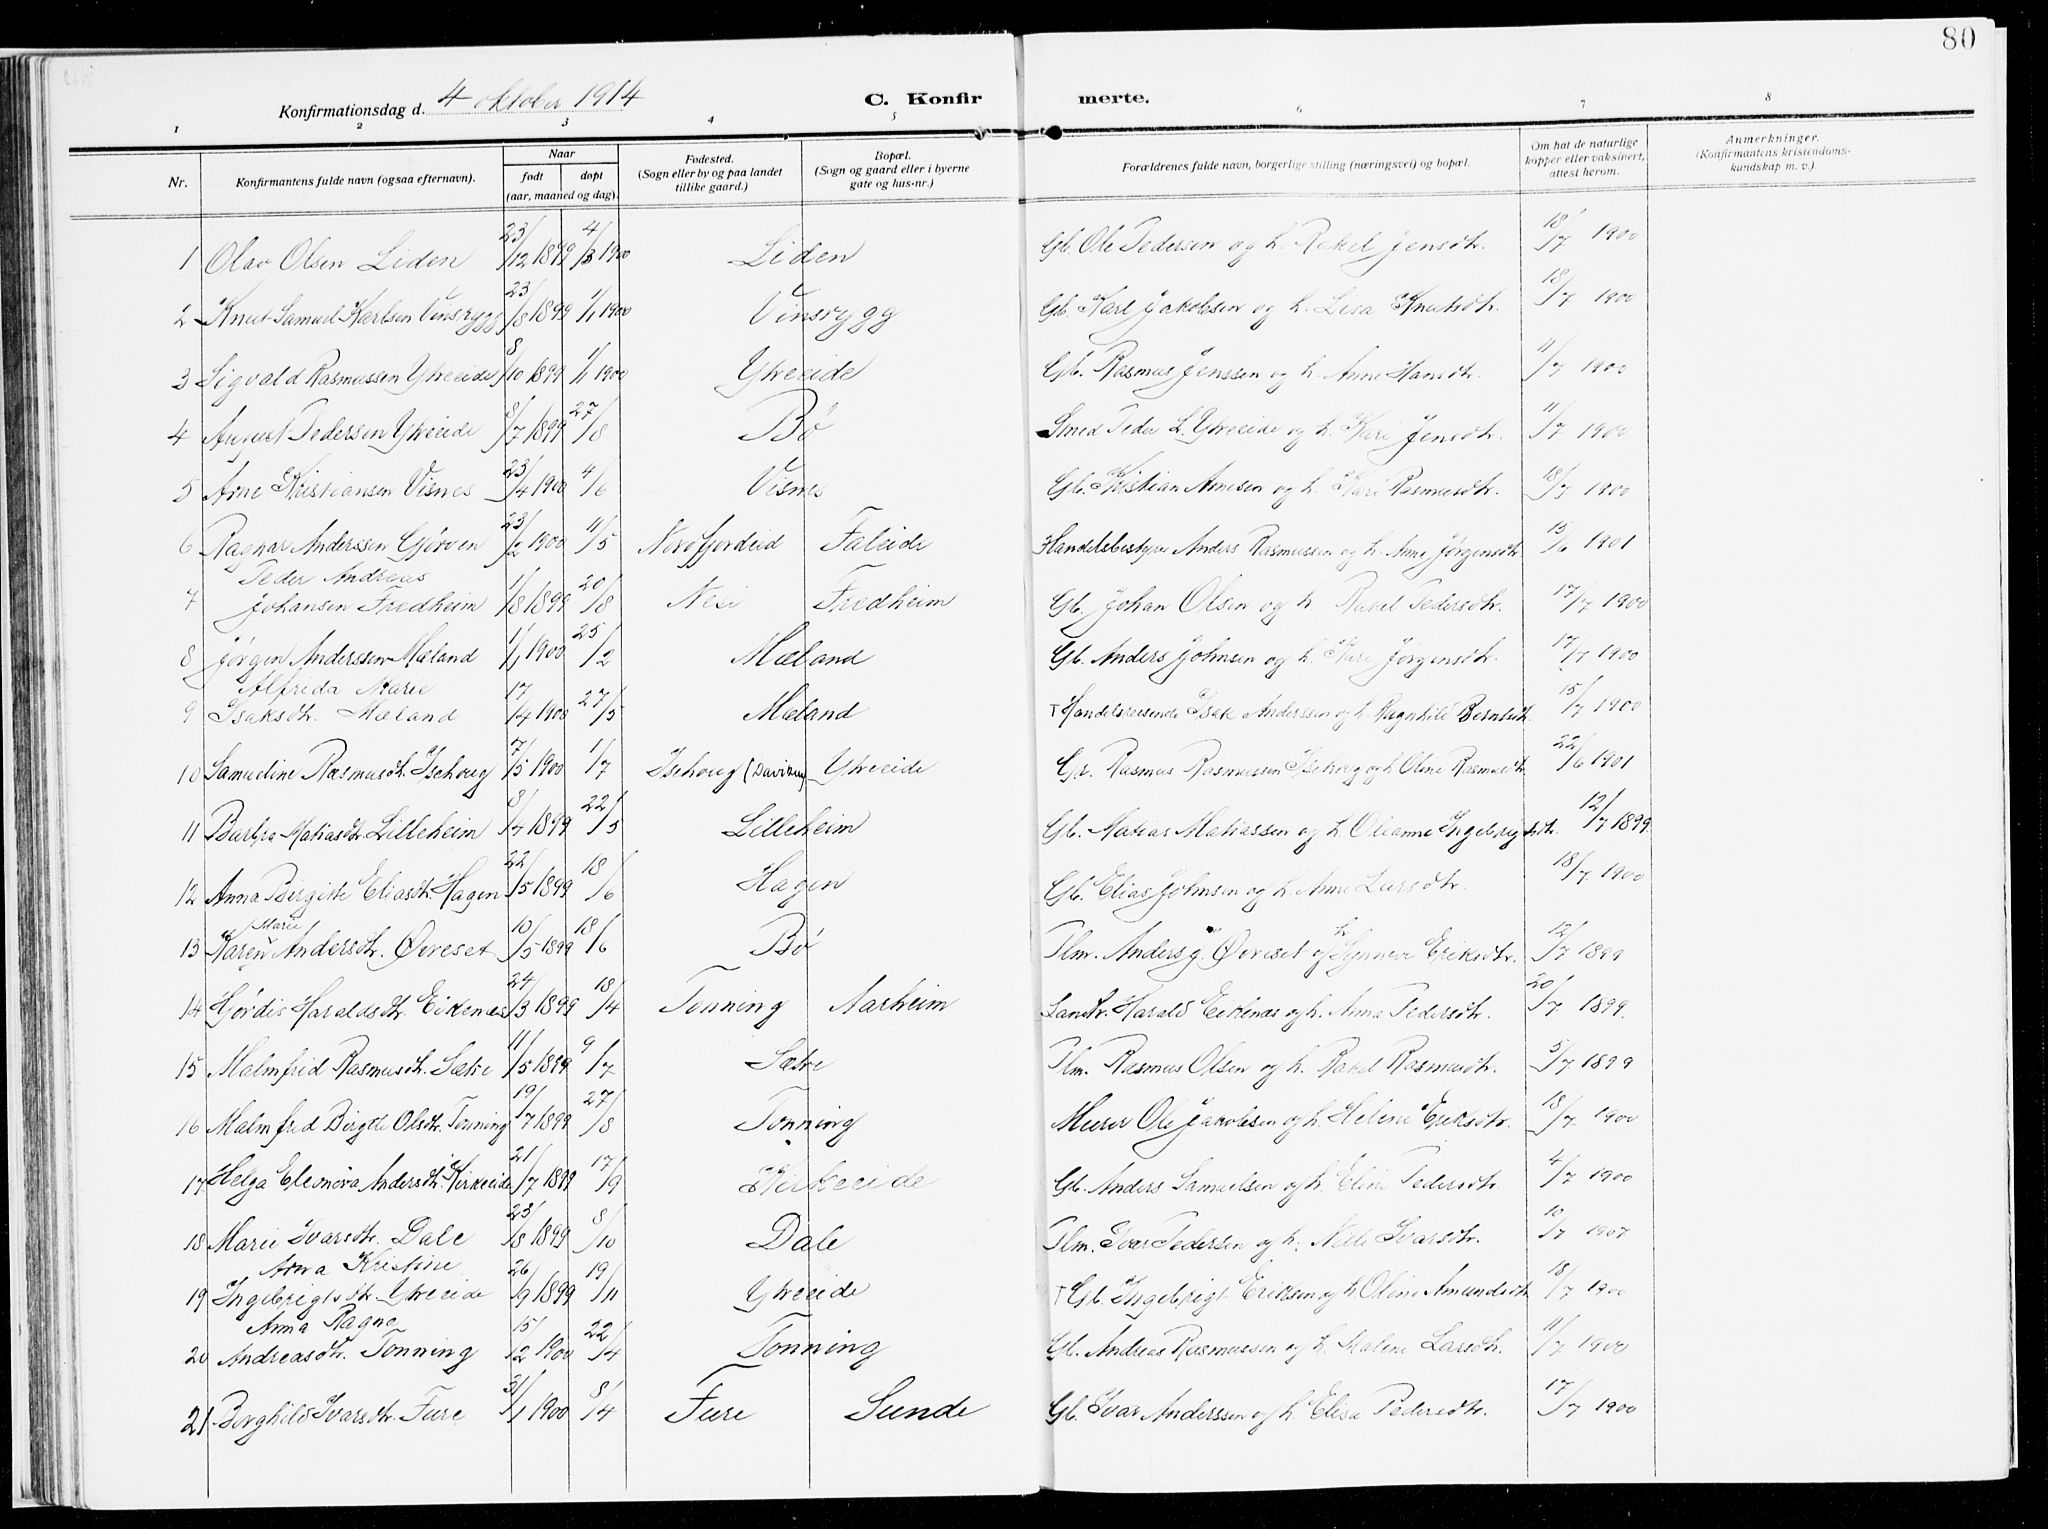 80
Konfirmationsdag d. 4 oktober 1914 C. Konfir merte.
1 2 3 4 5 6 7 8
Nr. Konfirmantens fulde navn (ogsaa efternavn). Naar født døpt (aar, maaned og dag) Fødested. (Sogn eller by og paa landet tillike gaard.) Bopæl. (Sogn og gaard eller i byerne gate og hus-nr.) Forældrenes fulde navn, borgerlige stilling (næringsvei) og bopæl. Om hat de naturlige kopper eller vaksinert, attest herom. Anmerkninger. (Konfirmantens kristendoms-kundskap m. v.)
1 Olav Olsen Liden 23/12 1899 4/3 1900 Liden Gb. Ole Pedersen og h. Rakel Jensdtr. 18/7 1900
2 Knut Samuel Karlsen Vinsrygg 23/8 1899 1/1 1900 Vinsrygg Gb. Karl Jakobsen og h. Lisa Knutsdtr. 18/7 1900
3 Sigvald Rasmussen Ytreeide 8/10 1899 1/1 1900 Ytreeide Gb. Rasmus Jenssen og h. Anne Hansdtr. 11/7 1900
4 August Pedersen Ytreeide 8/7 1899 27/8 Bø Smed Peder L. Ytreeide og h. Kari Jensdtr. 11/7 1900
5 Arne Kristiansen Visnes 23/4 1900 4/6 Visnes Gb. Kristian Arnesen og h. Kari Rasmusdtr. 18/7 1900
6 Ragnar Anderssen Gjørven 23/2 1900 11/5 Nordfjordeid Faleide Handelsbestyrer Anders Rasmussen og h. Anne Jørgensdtr. 15/6 1901
7 Peder Andreas Johansen Fredheim 1/8 1899 20/8 Nesi Fredheim Gb. Johan Olsen og h. Rakel Pedersdtr. 17/7 1900
8 Jørgen Anderssen Mæland 1/1 1900 25/2 Mæland Gb. Anders Johnsen og h. Kari Jørgensdtr. 17/7 1900
9 Alfrida Marie Isaksdtr. Mæland 17/4 1900 27/5 Mæland † Handelsreisende Isak Anderssen og h. Ragnhild Berntsdtr. 15/7 1900
10 Samueline Rasmusdtr. Isehoug 7/5 1900 1/7 Isehoug (Daviken) Ytreeide Gr. Rasmus Rasmussen Isehoug og h. Oline Rasmusdtr. 22/6 1901
11 Barbra Matiasdtr. Lilleheim 8/4 1899 22/5 Lilleheim Gb. Matias Matiassen og h. Olianne Ingebrigtsdtr. 12/7 1899
12 Anna Birgitte Eliasdtr. Hagen 22/5 1899 18/6 Hagen Gb. Elias Johnsen og h. Anne Larsdtr. 18/7 1900
13 Karen Marie Andersdtr. Øvreset 10/5 1899 18/6 Bø Plm. Anders J. Øvreset og h. Synneve Eriksdtr. 12/7 1899
14 Hjørdis Haraldsdtr. Eikenæs 24/3 1899 18/4 Tonning Aarheim Landh. Harald Eikenæs og h. Anna Pedersdtr. 20/7 1899.
15 Malmfrid Rasmusdtr. Sætre 11/5 1899 9/7 Sætre Plm. Rasmus Olsen og h. Rakel Rasmusdtr. 5/7 1899
16 Malmfrid Birgitte Olsdtr. Tonning 19/7 1899 27/8 Tonning Murer Ole Jakobsen og h. Helene Eriksdtr. 18/7 1900
17 Helga Eleonora Andersdtr. Kirkeeide 21/7 1899 17/9 Kirkeeide Gb. Anders Samuelsen og h. Eline Pedersdtr. 4/7 1900
18 Marie Ivarsdtr. Dale 23/8 1899 8/10 Dale Plm. Ivar Pedersen og h. Nille Ivarsdtr. 10/7 1907
19 Anna Kristine Ingebrigtsdtr. Ytreeide 26/9 1899 19/11 Ytreeide † Gb. Ingebrigt Eriksen og h. Oline Amundsdtr. 18/7 1900
20 Anna Ragna Andreasdtr. Tonning 15/2 1900 22/4 Tonning Gb. Andreas Rasmussen og h. Malene Larsdtr. 11/7 1900
21 Borghild Ivarsdtr. Fure 31/1 1900 8/4 Fure Sunde Gb. Ivar Anderssen og h. Elisa Pedersdtr. 17/7 1900